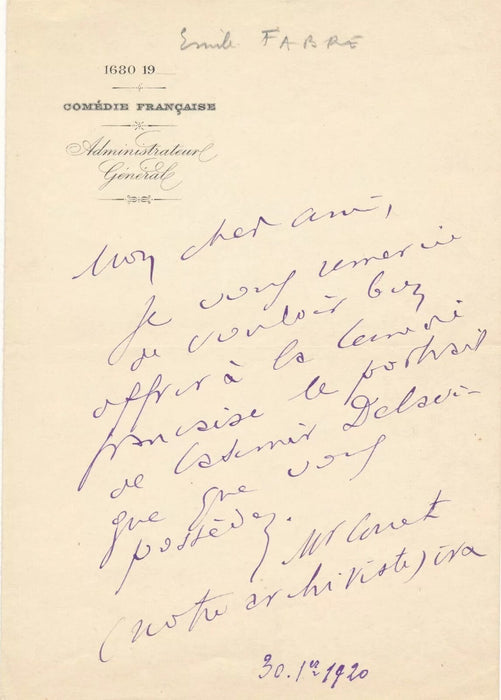 Emile FABRE
1680 19
COMÉDIE FRANÇAISE
Administrateur
Général
Mon cher ami,
Je vous remercie
de vouloir bien
offrir à la Comédie
française le portrait
de Casimir Delavi-
gne que vous
possédez.
Mr Couet
(notre archiviste) ira
30. 1er 1920